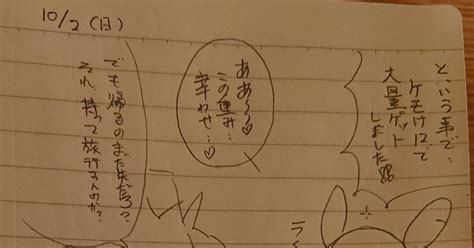 10/2（日）
という事で…
ケモけ12で
大量ゲット
しました
ああ〜♡
この重み…
幸わせ…♡
でも帰るのまだ先だろ？
それ、持って旅行すんのか？